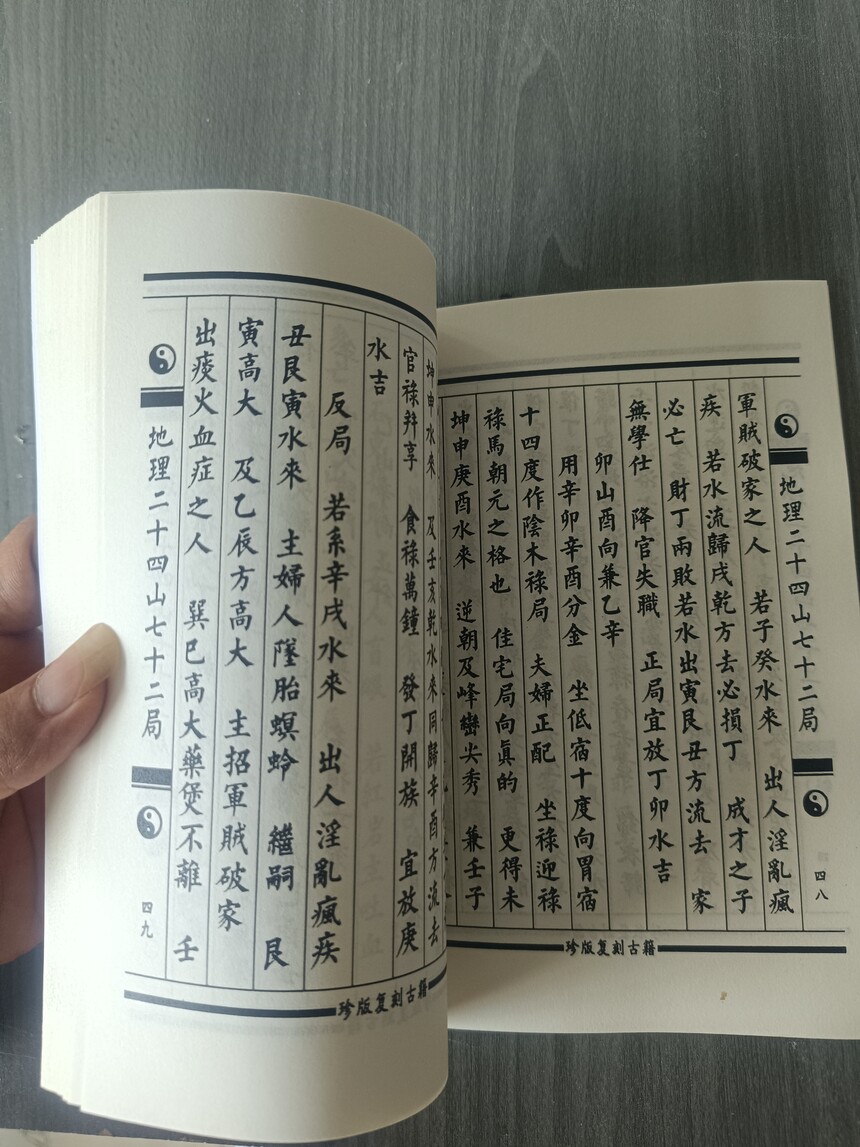 地理二十四山七十二局
四八
軍賊破家之人 若子癸水來 出人淫亂瘋
疾 若水流歸戌乾方去必損丁 成才之子
必亡 財丁兩敗若水出寅艮丑方流去 家
無學仕 降官失職 正局宜放丁卯水吉
卯山酉向兼乙辛
用辛卯辛酉分金 坐低宿十度向胃宿
十四度作陰木祿局 夫婦正配 坐祿迎祿
祿馬朝元之格也 佳宅局向眞的 更得未
坤申庚酉水來 逆朝及峰巒尖秀 兼壬子
珍版复刻古籍
坤申水來 及壬亥乾水來同歸辛酉方流去
官祿并享 食祿萬鐘 發丁開族 宜放庚
水吉
反局 若系辛戌水來 出人淫亂瘋疾
丑艮寅水來 主婦人墜胎螟蛉 繼嗣 艮
寅高大 及乙辰方高大 主招軍賊破家
出痰火血症之人 巽巳高大藥煲不離 壬
地理二十四山七十二局
四九
珍版复刻古籍